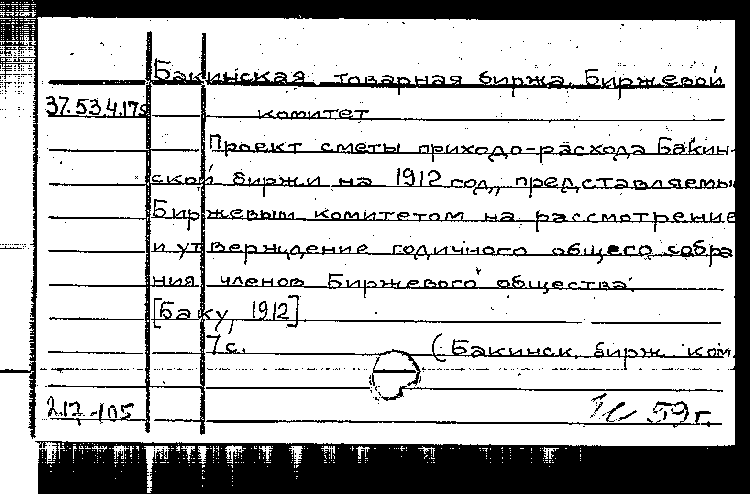 Бакинская товарная биржа. Биржевой
37.53.4.175 комитет
Проект сметы приходо-расхода Бакин-
ской биржи на 1912 год, представляемы
Биржевым комитетом на рассмотрение
и утверждение годичного общего собра
ния членов Биржевого общества.
[Баку, 1912]
7с. (Бакинск. бирж. ком.
212-105 59 г.